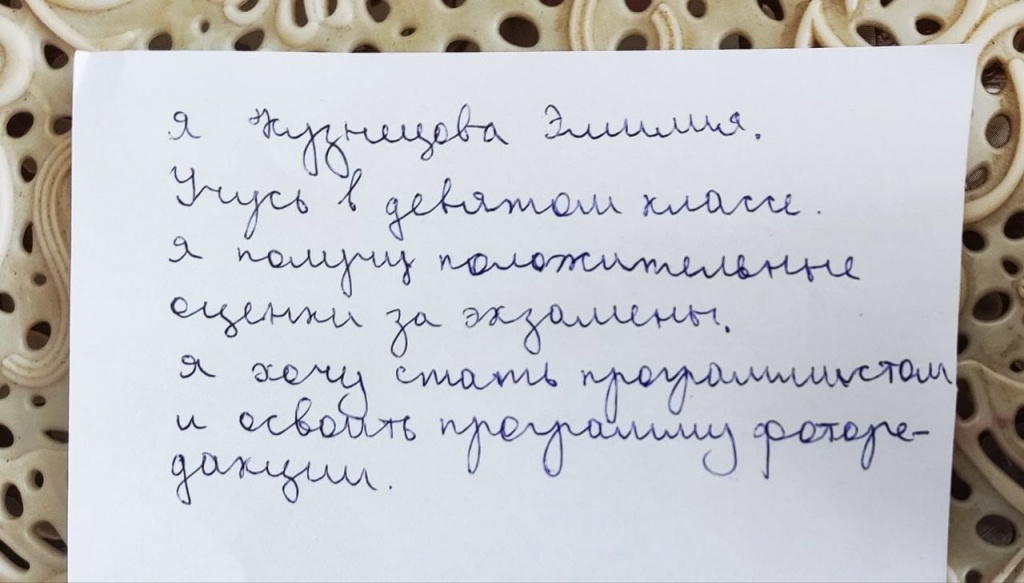 Я Кузнецова Эмилия.
Учусь в девятом классе.
Я получу положительные
оценки за экзамены.
Я хочу стать программистом
и освоить программу фоторе-
дакции.